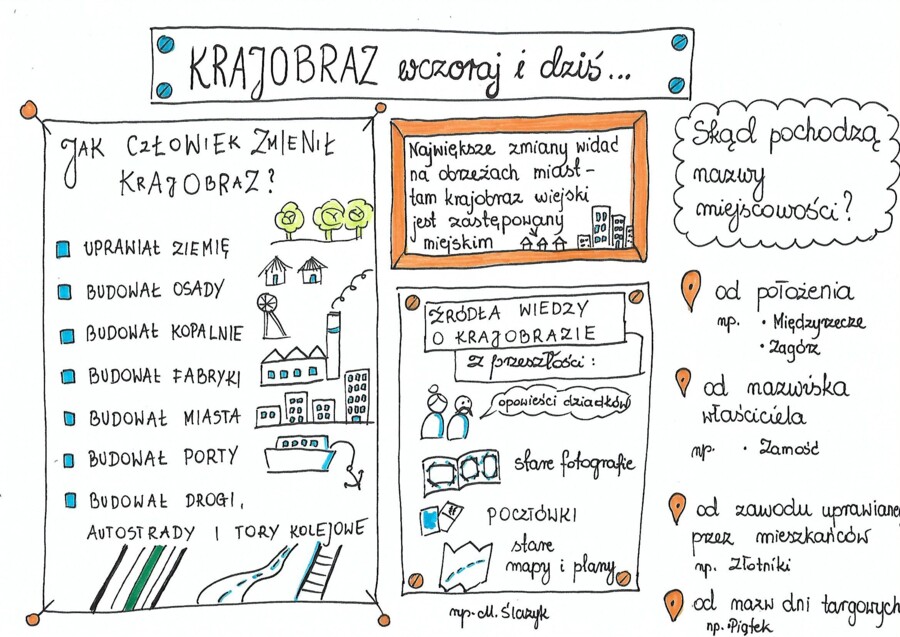 KRAJOBRAZ wczoraj i dziś...
JAK CZŁOWIEK ZMIENIŁ
KRAJOBRAZ?
UPRAWIAŁ ZIEMIĘ
BUDOWAŁ OSADY
BUDOWAŁ KOPALNIE
BUDOWAŁ FABRYKI
BUDOWAŁ MIASTA
BUDOWAŁ PORTY
BUDOWAŁ DROGI,
AUTOSTRADY I TORY KOLEJOWE
Największe zmiany widać
na obrzeżach miast -
tam krajobraz wiejski
jest zastępowany
miejskim
ŹRÓDŁA WIEDZY
O KRAJOBRAZIE
z przeszłości:
opowieści dziadków
stare fotografie
POCZTÓWKI
stare
mapy i plany
np. M. Ślazyk
Skąd pochodzą
nazwy
miejscowości?
od położenia
np. • Międzyrzecze
• Zagórz
od nazwiska
właściciela
np. • Zamość
od zawodu uprawiane
przez mieszkańców
np. Złotniki
od nazw dni targowych
np. Piątek